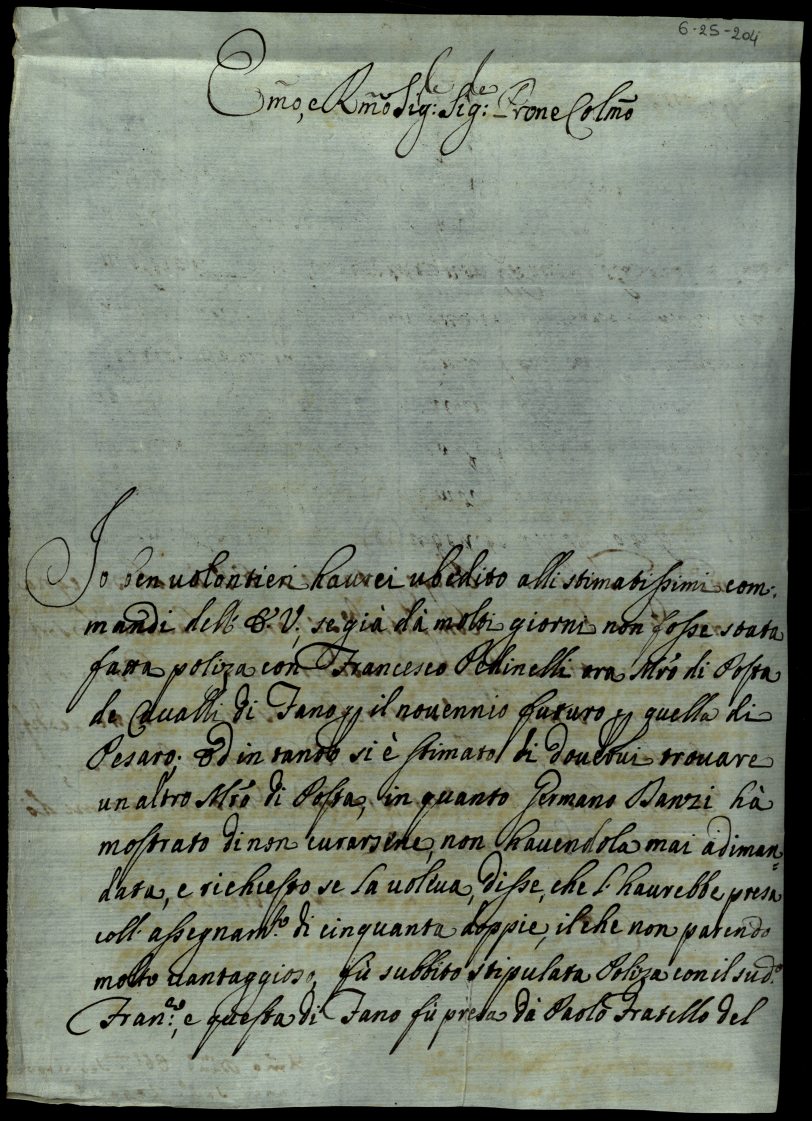 6-25-204
Emo, e Rmo Sig:le Sig:de Prone Colmo
Io ben uolontieri haurei ubedito alli stimatissimi com:
mandi dell' E. V., se già dà molti giorni non fosse stata
fatta poliza con Francesco Pedinelli ora Mro di Posta
de Caualli di Fano p il nouennio futuro p quella di
Pesaro; ed in tanto si è stimato di douerui trouare
un altro Mro di Posta, in quanto Germano Banzi hà
mostrato di non curarsene, non hauendola mai adiman=
data, e richiesto se la uoleua, disse, che l'haurebbe presa
coll' assegnamto di cinquanta doppie, il che non parendo
molto uantaggioso, fù subbito stipulata Poliza con il sudo
Franco:, e questa di Fano fù presa dà Paolo Fratello del